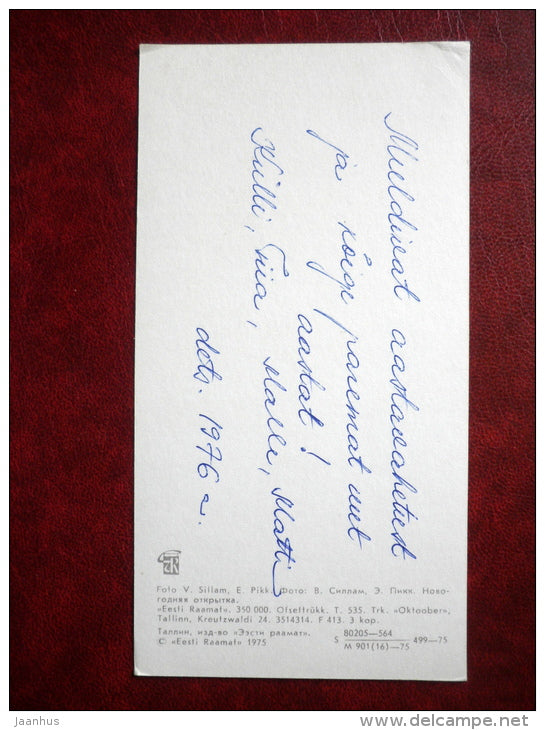 Meeldivat aastavahetust
ja kõige paremat uut
aastat!
Külli, Tiia, Malle, Matti
dets. 1976 a.
Foto V. Sillam, E. Pikk. Фото: В. Силлам, Э. Пикк. Ново-
годняя открытка.
«Eesti Raamat». 350 000. Ofsettrükk. T. 535. Trk. "Oktoober",
Tallinn, Kreutzwaldi 24. 3514314. F 413. 3 kop.
Таллин, изд-во «Ээсти раамат».
© «Eesti Raamat» 1975
S 80205—564 499—75
M 901(16)—75
Jaanhus
www.delcampe.net